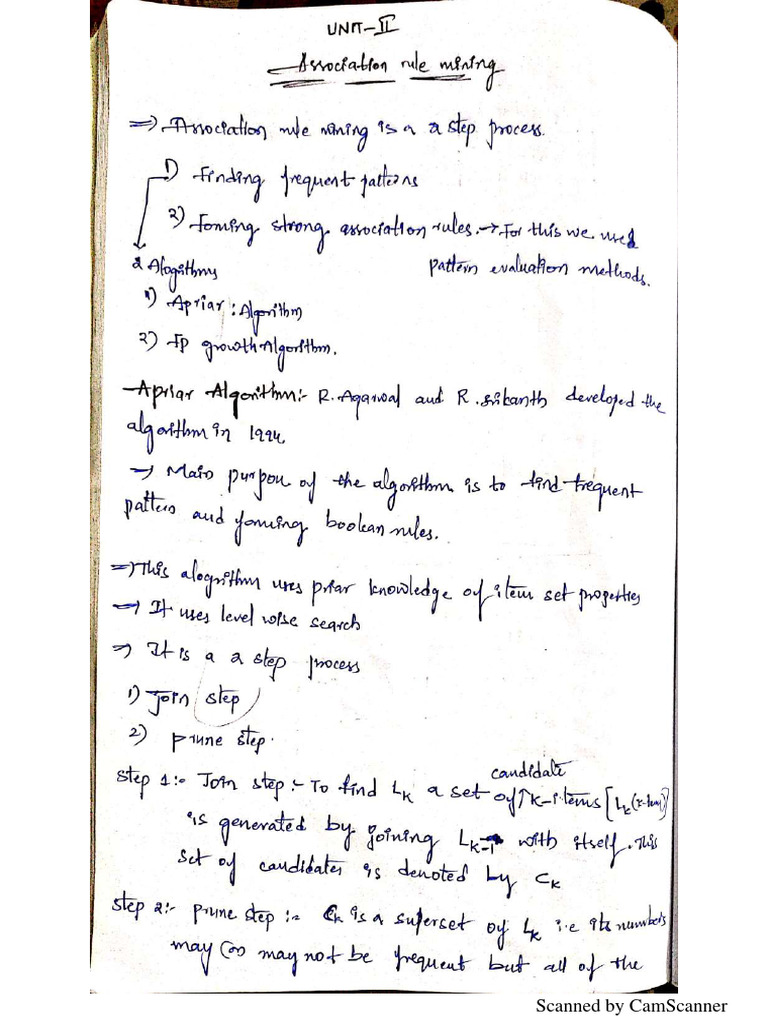 UNIT-II
Association rule mining
=> Association rule mining is a 2 step process.
1) Finding frequent patterns
2) Foming strong association rules. → For this we used
pattern evaluation methods.
2 Alogithms
1) Apriar : Algorithm
2) Fp growth Algorithm.
Apriar Algorithm:- R. Agarwal and R. Srikanth developed the
algorithm in 1994.
→ Main purpou of the algorithm is to find frequent
pattern and foming boolean rules.
=> This alogrithm uses priar knowledge of item set properties
=> It uses level wise search
=> It is a 2 step process
1) Join step
2) prune step.
candidate
Step 1:- Join step:- To find Lk a set of ↑ k-items [Lk
is generated by joining Lk-1 with itself. This
set of candidates is denoted by Ck
Step 2:- prune step:- Ck is a superset of Lk i.e its numbers
may (or) may not be frequent but all of the
Scanned by CamScanner